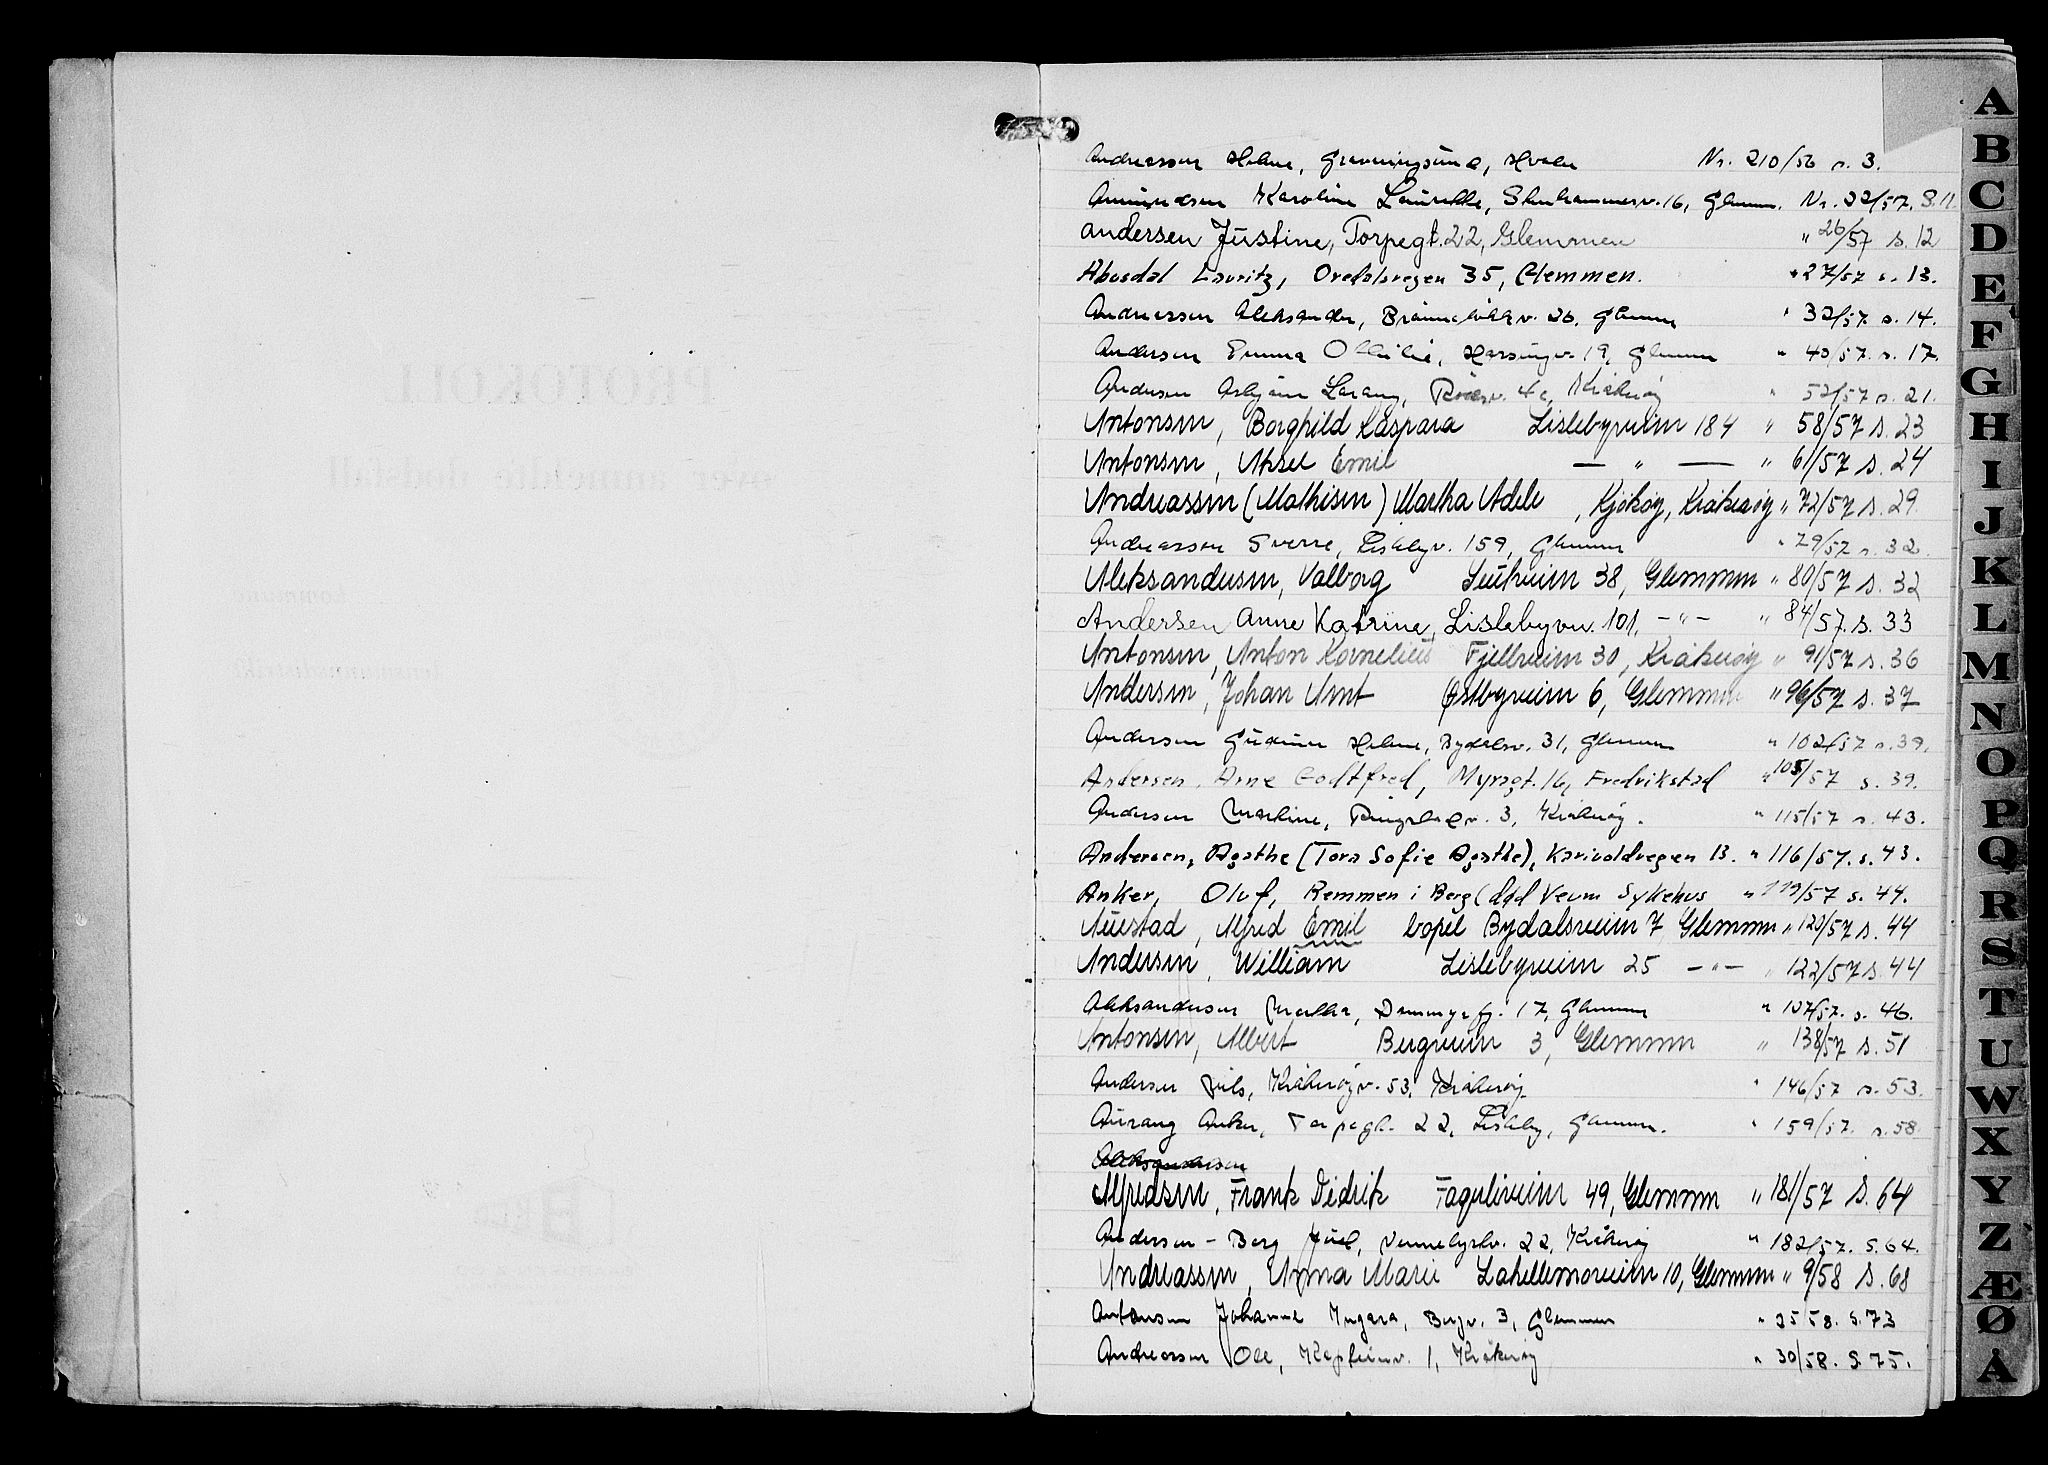 Andreassen Helene, Gravningsund, Hvaler Nr. 210/56 s. 3.
Amundsen Karoline Laurette, 16, Glemmen. Nr. 22/57. S. 11
Andersen Justine, Torpegt. 22, Glemmen " 26/57 s. 12
Lauritz, Oredalsvegen 35, Glemmen. " 27/57 s. 13.
Andreassen Aleksander, 26. Glemmen " 32/57. s. 14.
Andersen Emma Ottilie, 19, Glemmen " 40/57. s. 17.
Andersen Asbjørn 4c, Kråkerøy " 52/57 s. 21.
Antonsen, Borghild Kaspara Lislebyveien 184 " 58/57 s. 23
Antonsen, Aksel Emil — " — " 61/57 s. 24
Andreassen (Mathisen) Martha Adele, Kjøkøy, Kråkerøy " 72/57 s. 29
Andreassen Sverre, Lislebyv. 159, Glemmen " 79/57 s. 32
Aleksandersen, Valborg 38, Glemmen " 80/57 s. 32
Andersen Anne Katrine, Lislebyvn. 101, - " - " 84/57. s. 33
Antonsen, Anton Kornelius Fjellveien 30, Kråkerøy " 91/57 s. 36
Andersen, Johan Arnt Østbyveien 6, Glemmen " 96/57 s. 37
Andersen Gudrun Helene, Bydalsv. 31, Glemmen " 102/57 s. 39.
Andersen, Arne Godtfred, Myragt. 16, Fredrikstad " 105/57 s. 39.
Andersen Martine, 3, Kråkerøy. " 115/57 s. 43.
Andersen, Agathe (Tora Sofie Agathe), Karivoldvegen 13. " 116/57. s. 43.
Anker, Oluf, Remmen i Berg (død Veum Sykehus " 119/57 s. 44.
Austad, Alfred Emil bopel Bydalsveien 7 Glemmen " 120/57 s. 44
Andersen, William Lislebyveien 25 - " - " 122/57 s. 44
Aleksandersen Martha, 17, Glemmen " 127/57. s. 46.
Antonsen, Albert Bergveien 3, Glemmen " 138/57 s. 51
Andersen Nils, Kråkerøyv. 53, Kråkerøy. " 146/57 s. 53.
Aurang Anker, Torpegt. 22, Lisleby, Glemmen. " 159/57. s. 58.
Aleksandersen
Alfredsen, Frank Didrik Fagerliveien 49, Glemmen " 181/57 s. 64
Andersen - Berg Juel, 22, Kråkerøy " 182/57. S. 64.
Andreassen, Anna Marie Lahellemoveien 10, Glemmen " 9/58 s. 68
Antonsen Johanne Ingara, Bergv. 3, Glemmen " 25 58. S. 73
Andreassen Ole, 1, Kråkerøy " 30/58. S. 75.
A
B
C
D
E
F
G
H
I
J
K
L
M
N
O
P
Q
R
S
T
U
W
X
Y
Z
Æ
Ø
Å